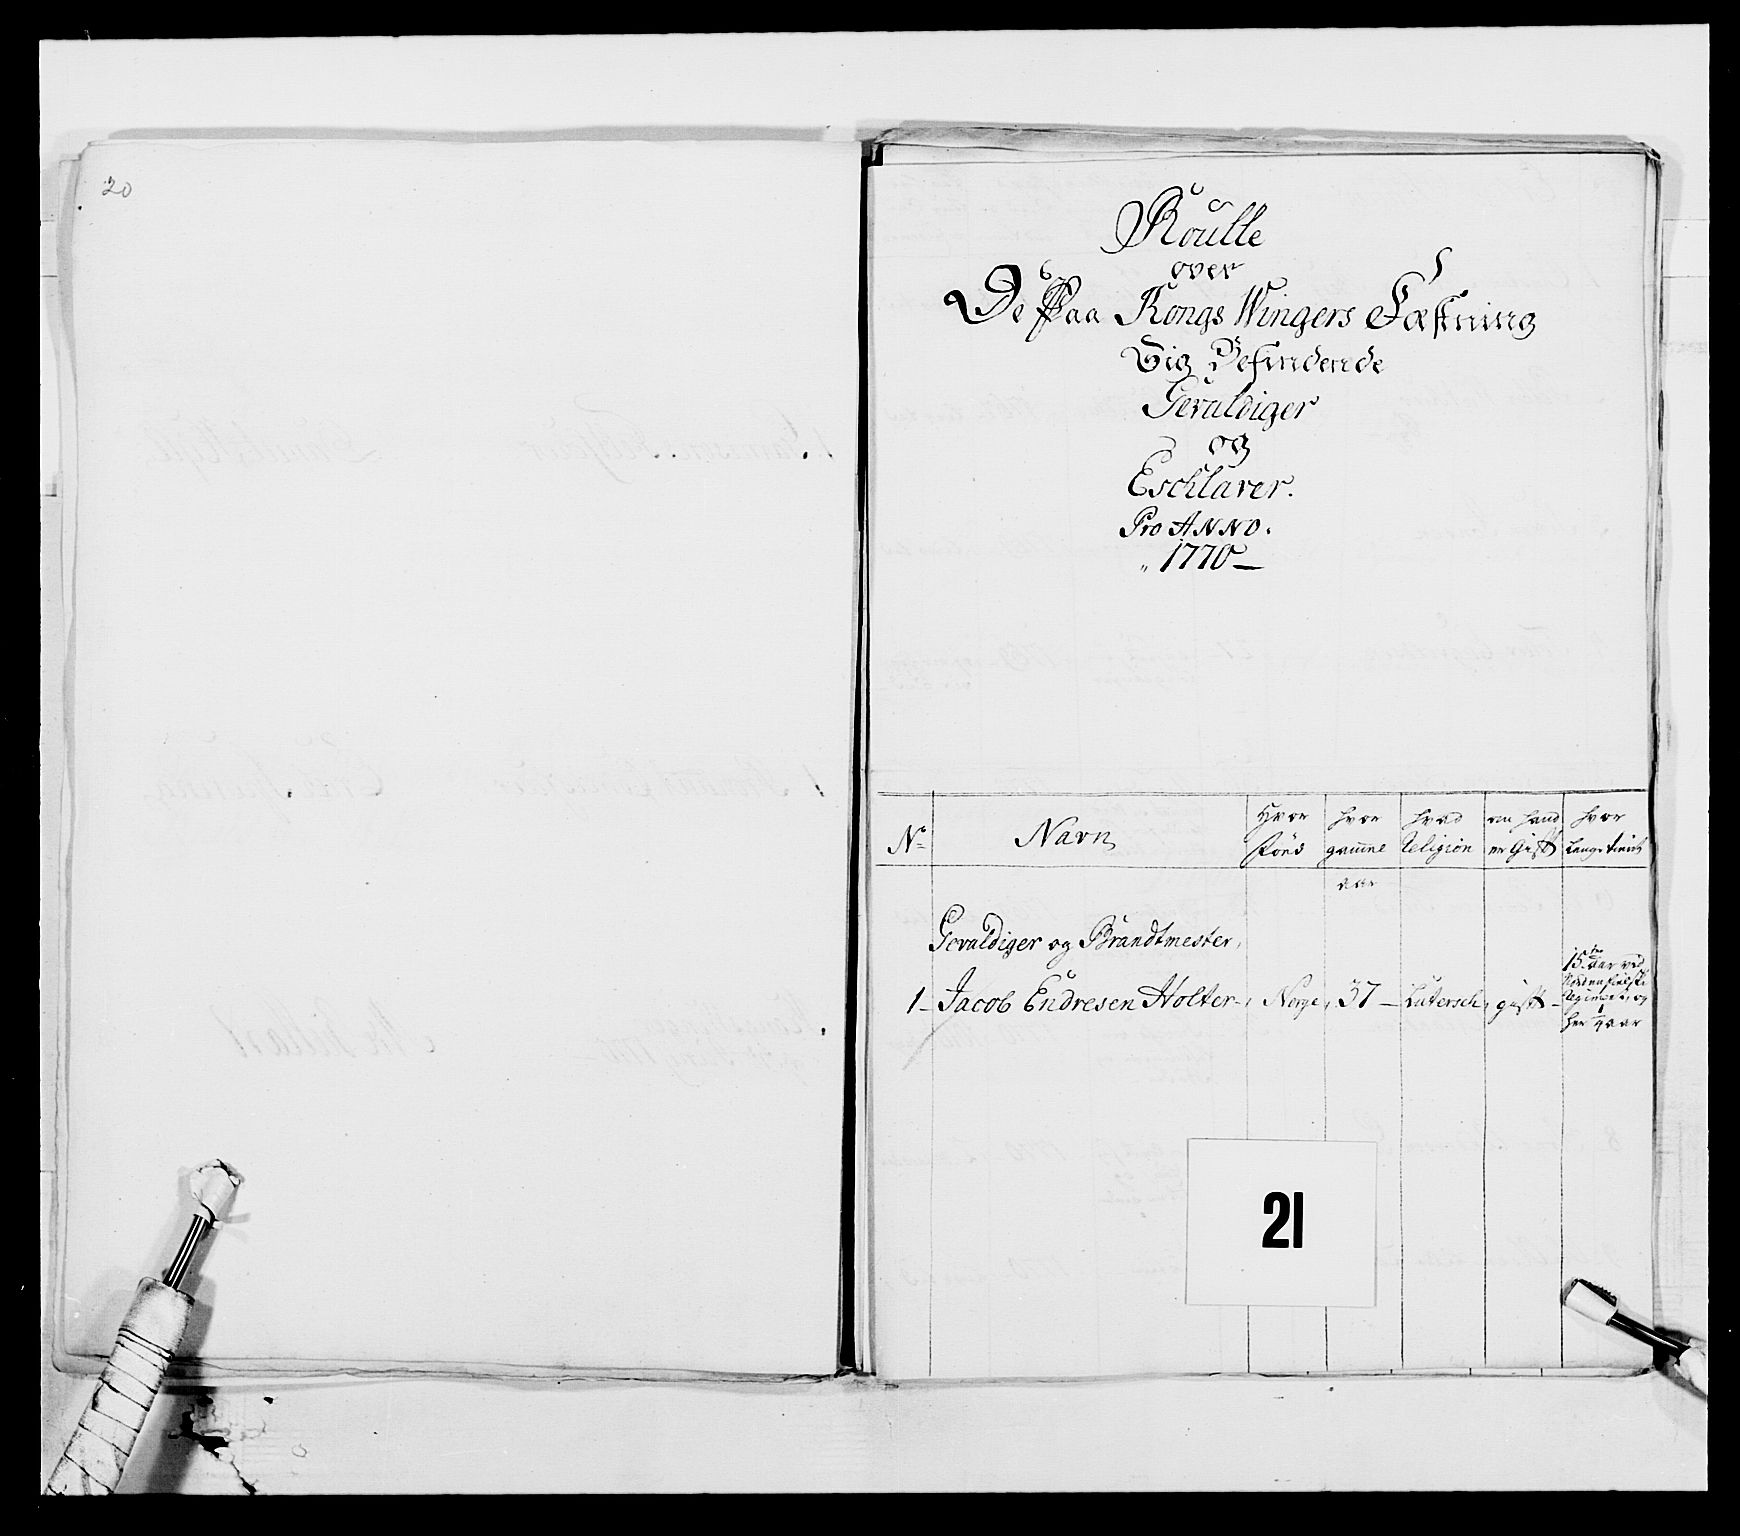 20
Roulle
over
De Paa Kongs Wingers Fæstning
Sig Befindende
Gevaldiger
og
Eschlaver.
Pro ANNO.
1770
No Navn Hvor Föed hvor gammel aar hvad Religion om hand er Gift hvor Lenge tient
Gevaldiger og Brandtmester,
1 Jacob Endresen Holter Norge 37 Lutersch gift 15 aar ved
og
her 4 aar
21